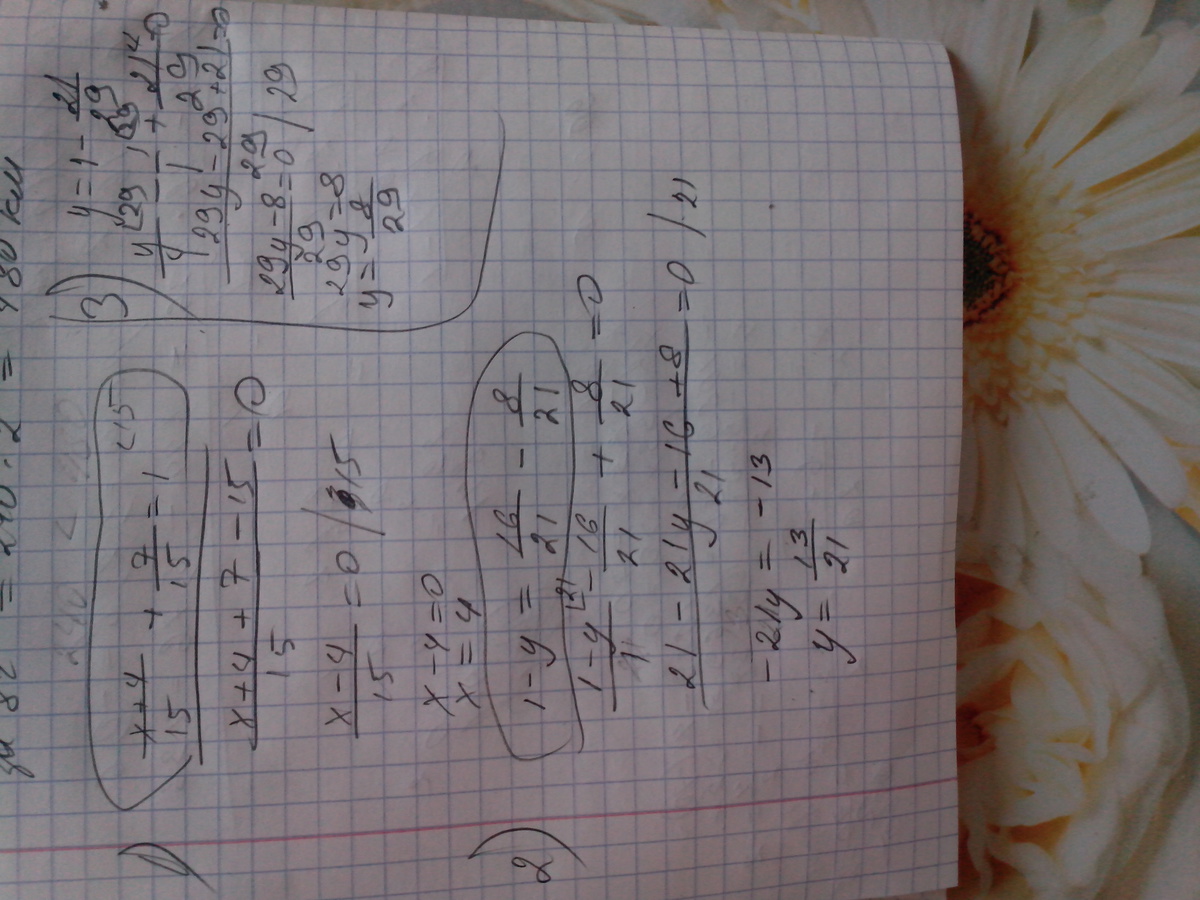 = 240 · 2 = 480 км
1)
x+4/15 + 7/15 = 1
x+4+7-15/15 = 0
x-4/15 = 0 / 15
x-4=0
x=4
2)
1-y = 16/21 - 8/21
1-y/1 - 16/21 + 8/21 = 0
21-21y-16+8/21 = 0 / 21
-21y = -13
y = 13/21
3)
y = 1 - 21/29
y/1 - 1/1 + 21/29 = 0
29y-29+21=0/29
29y-8=0/29 / 29
29y=8
y = 8/29